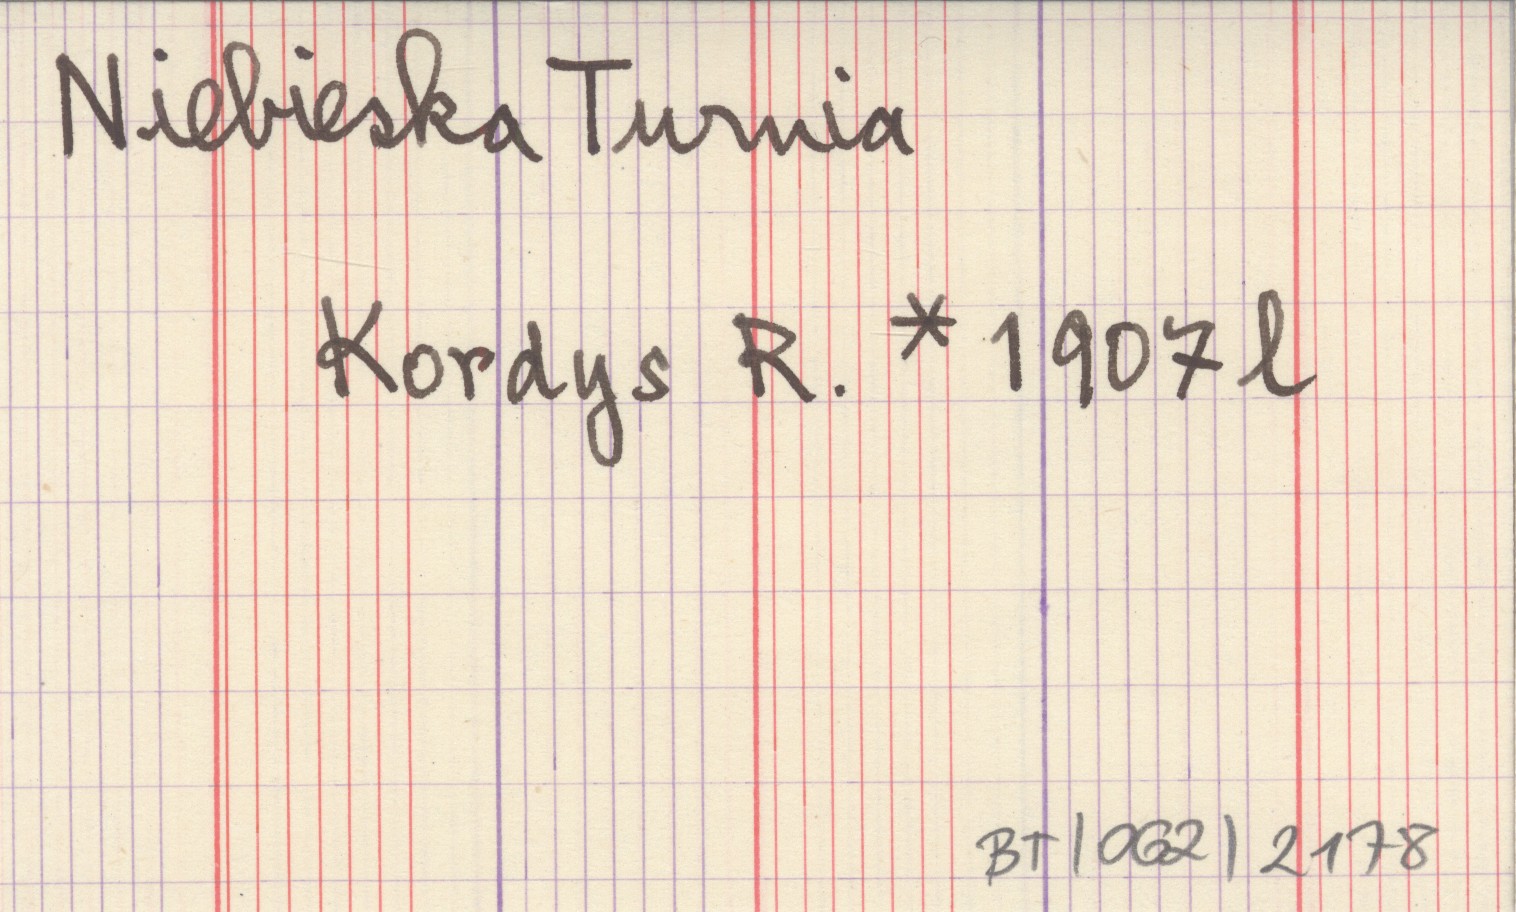 Niebieska Turnia
Kordys R. * 1907 l
BT/062/2178